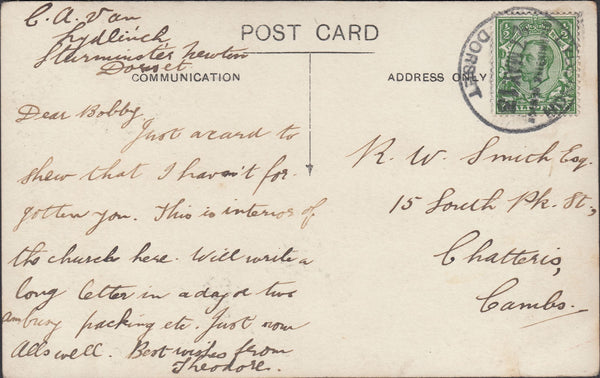 C. A. Van
Lydlinch
Sturminster Newton
Dorset
POST CARD
COMMUNICATION
ADDRESS ONLY
DORSET
Dear Bobby
Just a card to
shew that I havn't for-
gotten you. This is interior of
the church here. Will write a
long letter in a day or two
am busy packing etc. Just now
All's well. Best wishes from
Theodore.
R. W. Smith Esq.
15 South Pk. St.,
Chatteris,
Cambs.